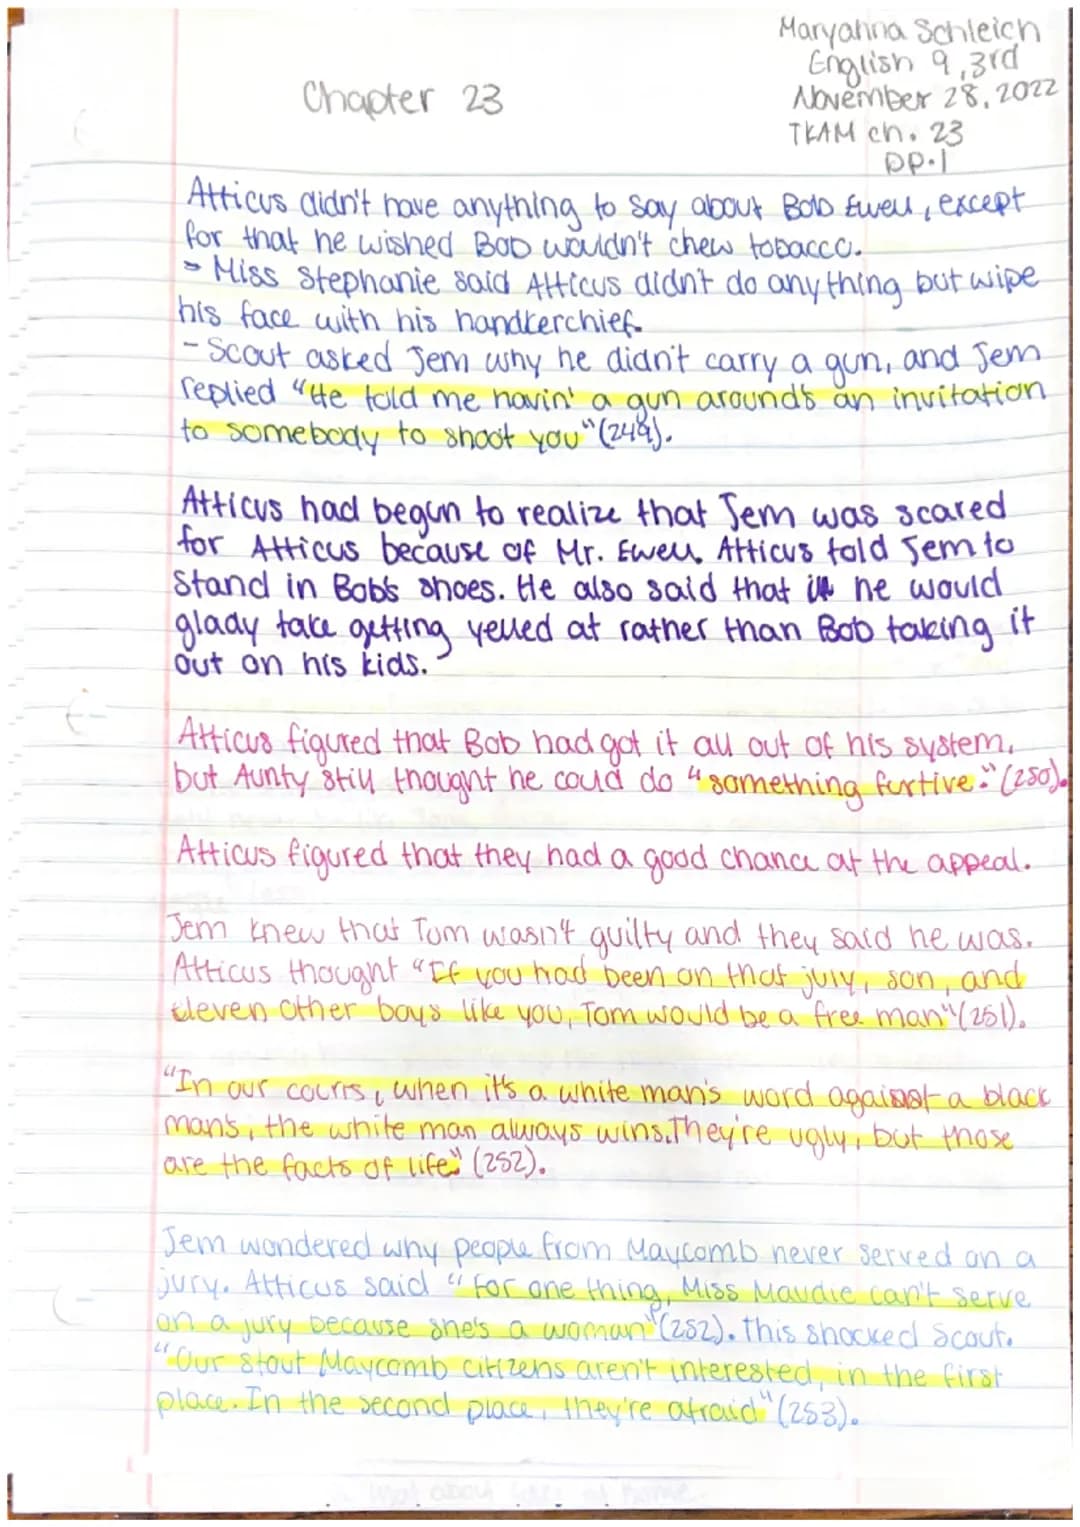 Maryanna Schleich
English 9, 3rd
Chapter 23
November 28, 2022
TKAM ch. 23
pp. 1
Atticus didn't have anything to say about Bob Ewell, except
for that he wished Bob wouldn't chew tobacco.
- Miss Stephanie said Atticus didn't do anything but wipe
his face with his handkerchief.
- Scout asked Jem why he didn't carry a gun, and Jem
replied "He told me havin' a gun around's an invitation
to somebody to shoot you" (249).
Atticus had begun to realize that Jem was scared
for Atticus because of Mr. Ewell. Atticus told Jem to
stand in Bob's shoes. He also said that he would
glady take getting yelled at rather than Bob taking it
out on his kids.
Atticus figured that Bob had got it all out of his system,
but Aunty still thought he could do "something furtive." (250).
Atticus figured that they had a good chance at the appeal.
Jem knew that Tom wasn't guilty and they said he was.
Atticus thought "If you had been on that jury, son, and
eleven other boys like you, Tom would be a free man" (251).
"In our courts, when it's a white man's word against a black
man's, the white man always wins. They're ugly, but those
are the facts of life" (252).
Jem wondered why people from Maycomb never served on a
jury. Atticus said "for one thing, Miss Maudie can't serve
on a jury because she's a woman" (252). This shocked Scout.
"Our stout Maycomb citizens aren't interested, in the first
place. In the second place, they're afraid" (253).